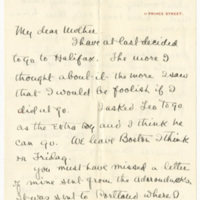 11 PRINCE STREET.
My dear Mother
I have at last decided
to go to Halifax. The more I
thought about it the more I saw
that I would be foolish if I
did not go. I asked Leo to go
as the Extra boy and I think he
can go. We leave Boston I think
on Friday.
You must have missed a letter
of mine sent from the Adirondacks
It was sent to Portland where I